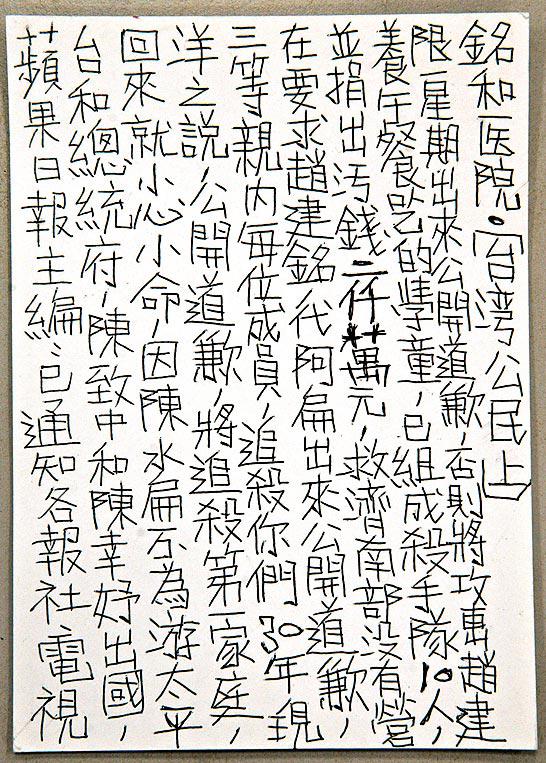 蘋果日報主編:已通知各報社電視
台和總統府,陳致中和陳幸妤出國,
回來就小心小命,因陳水扁不為游太平
洋之說,公開道歉,將追殺第一家庭,
三等親內每位成員,追殺你們30年現
在要求趙建銘代阿扁出來公開道歉,
並捐出污錢二仟萬元,救濟南部沒有營
養午餐吃的學童,已組成殺手隊10人,
限一星期出來公開道歉,否則將攻趙建
銘和医院。「台湾公民上」